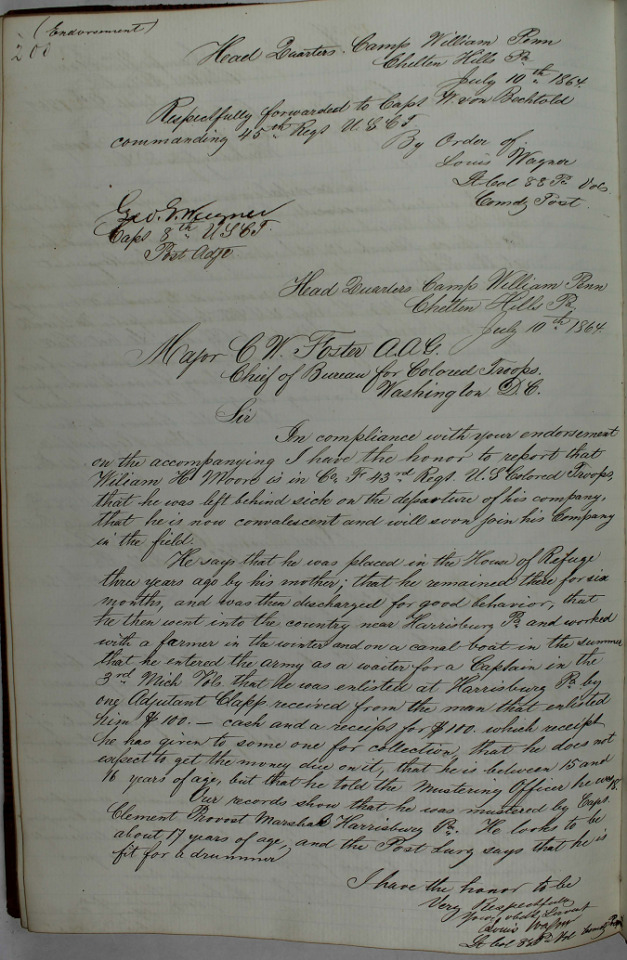 (Endorsement)
200
Head Quarters Camp William Penn
Chelten Hills Pa
July 10th 1864.
Respectfully forwarded to Capt W. von Bechtold
commanding 45th Regt U S C T
By Order of
Louis Wagner
Lt Col 88 Pa Vols
Comdg Post
Geo. E. Wagner
Capt 8th U S C T.
Post Adjt
Head Quarters Camp William Penn
Chelten Hills Pa
July 10th 1864.
Major C W. Foster A.A.G.
Chief of Bureau for Colored Troops.
Washington D.C.
Sir
In compliance with your endorsement
on the accompanying I have the honor to report that
William H. Moore is in Co. F 43rd Regt. U.S. Colored Troops,
that he was left behind sick on the departure of his company,
that he is now convalescent and will soon join his Company
in the field.
He says that he was placed in the House of Refuge
three years ago by his mother; that he remained there for six
months, and was then discharged for good behavior, that
he then went into the country near Harrisburg Pa and worked
with a farmer in the winter and on a canal boat in the summer
that he entered the army as a waiter for a Captain in the
3rd Mich Vols. that he was enlisted at Harrisburg Pa by
one Adjutant Clapp received from the man that enlisted
him $ 100. — cash and a receipt for $ 100. which receipt
he has given to some one for collection, that he does not
expect to get the money due on it, that he is between 15 and
16 years of age, but that he told the Mustering Officer he was 18.
Our records show that he was mustered by Capt.
Clement Provost Marshal Harrisburg Pa. He looks to be
about 17 years of age, and the Post Surg says that he is
fit for a drummer
I have the honor to be
Very Respectfully
Your obdt. Servant
Louis Wagner
Lt Col 88 Pa Vol Comdg Post